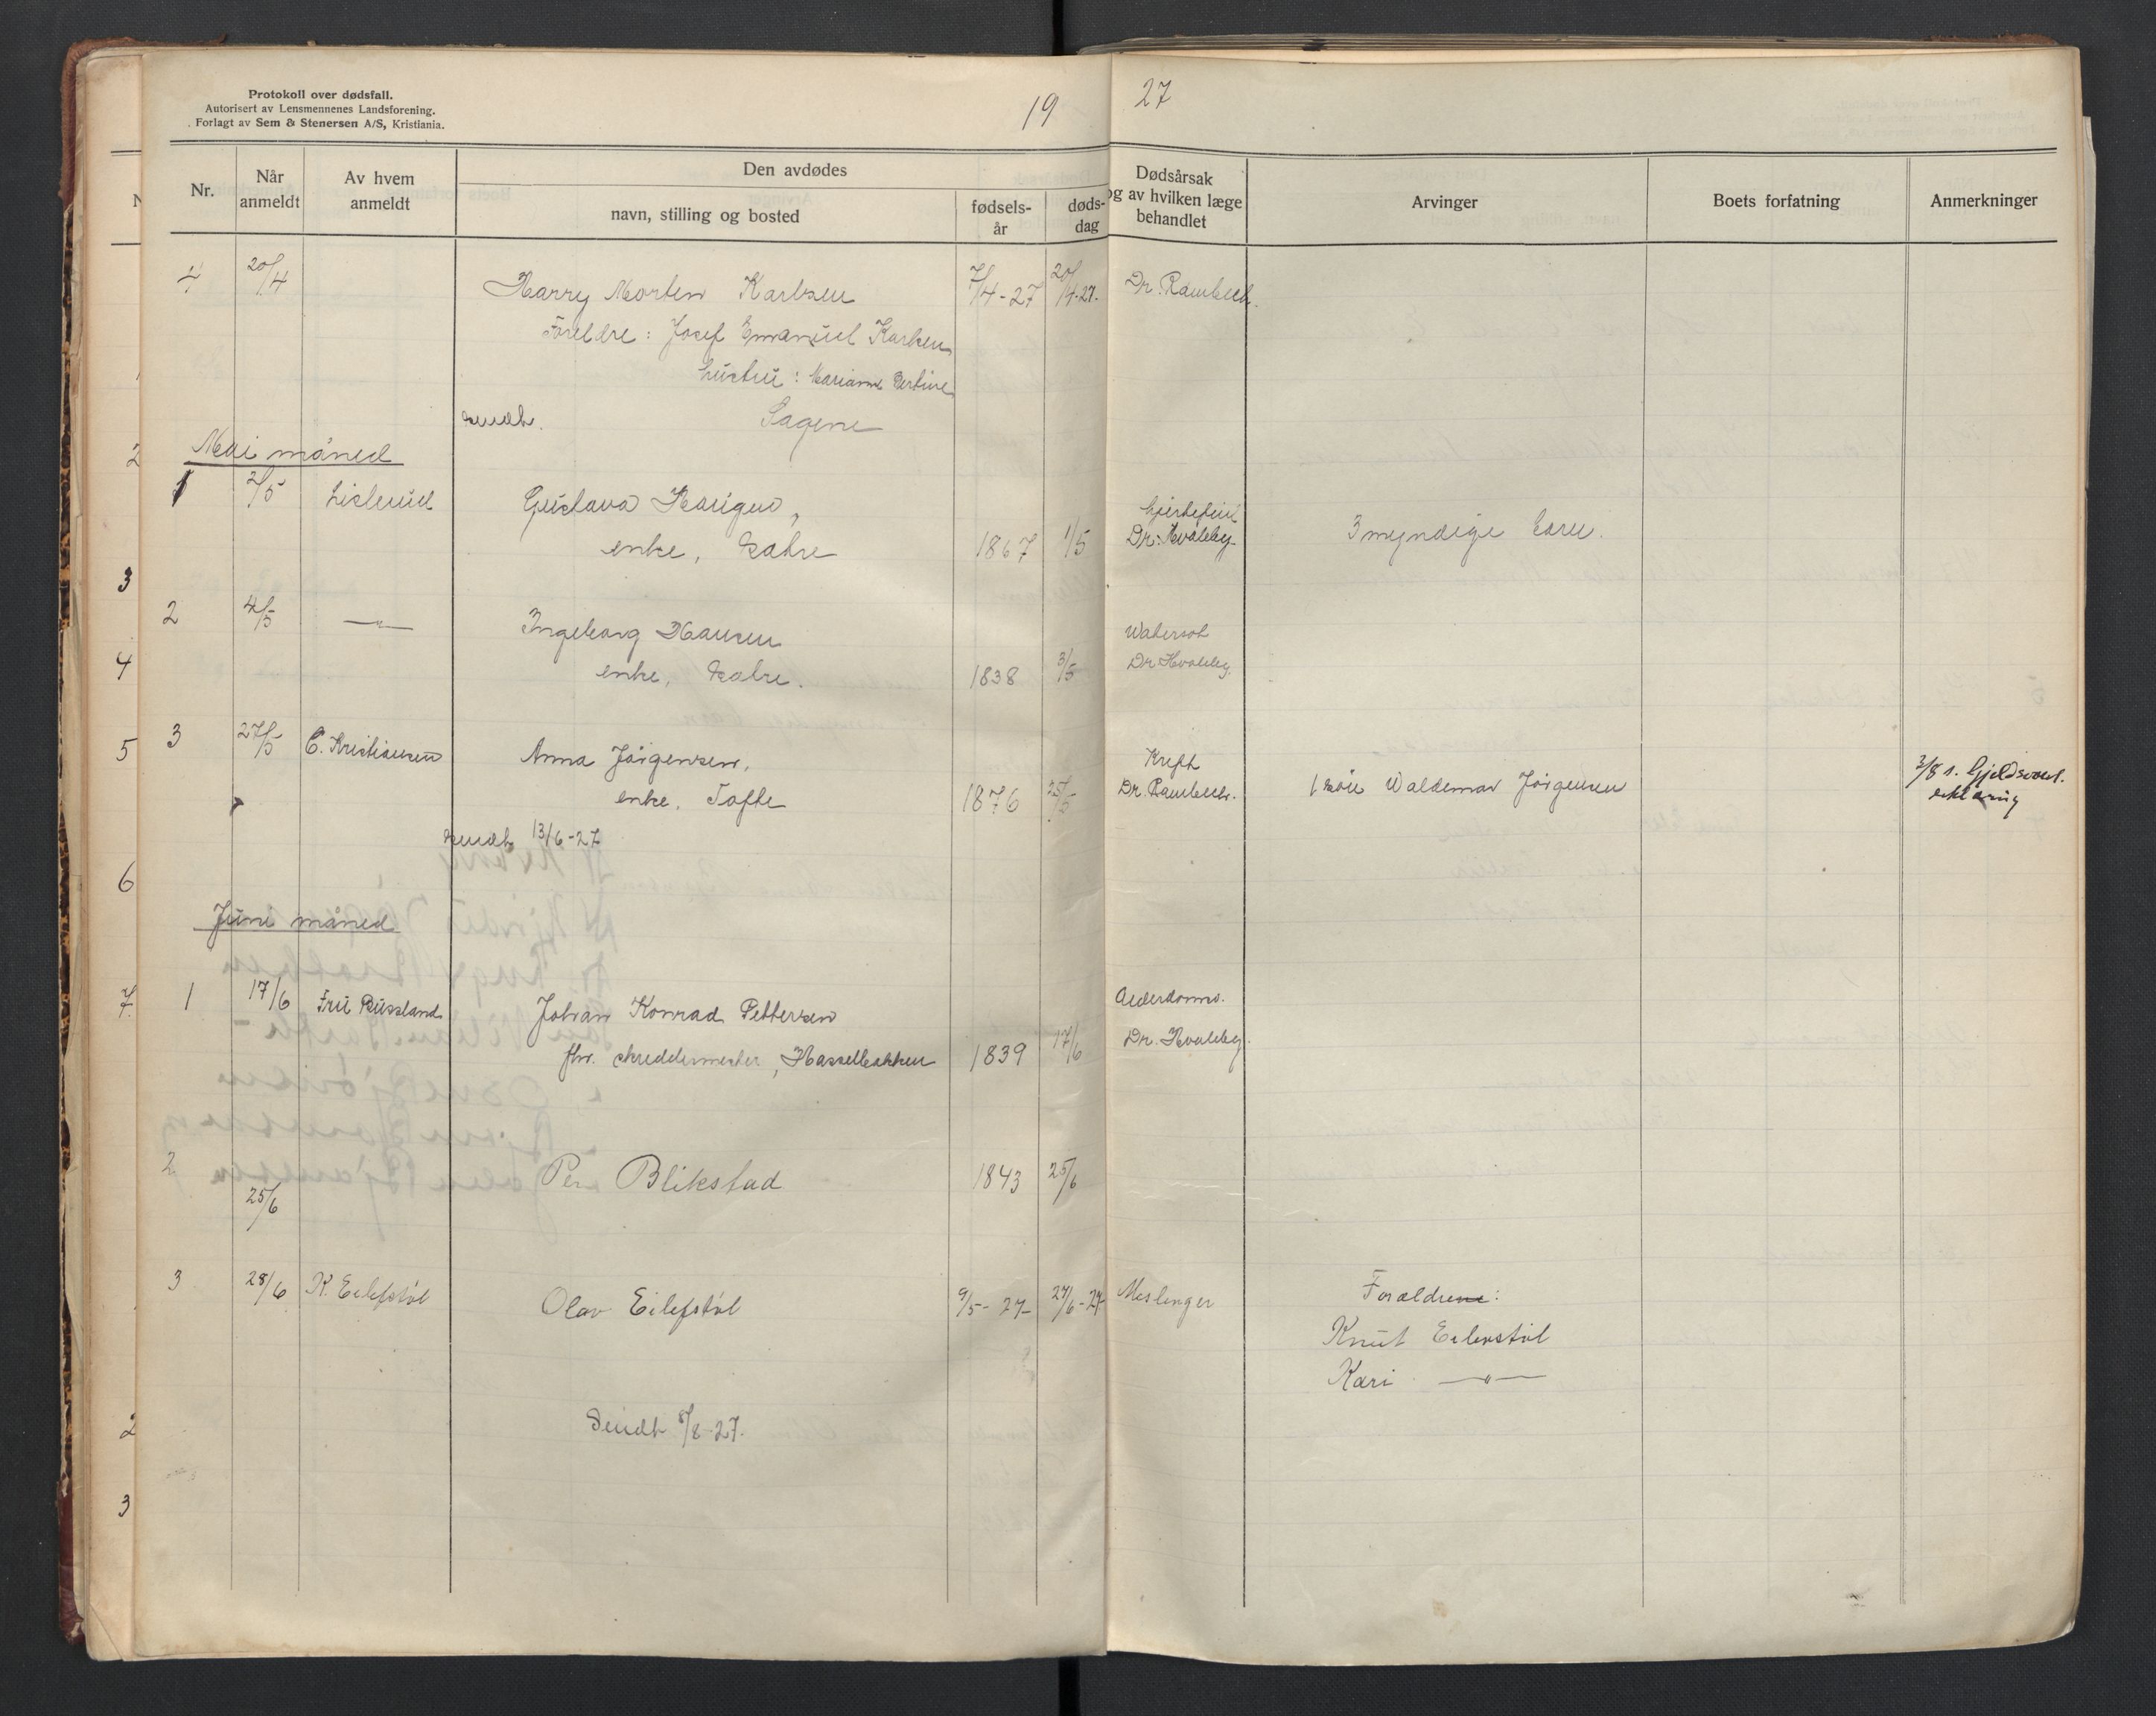 Protokoll over dødsfall.
Autorisert av Lensmennenes Landsforening.
Forlagt av Sem & Stenersen A/S, Kristiania.
19 27
Nr.
Når anmeldt
Av hvem anmeldt
Den avdødes
navn, stilling og bosted
fødsels-år
døds-dag
Dødsårsak
og av hvilken læge
behandlet
Arvinger
Boets forfatning
Anmerkninger
4 20/4 Harry Morten Karlsen 7/4-27 20/4-27. Dr. Rambech.
Foreldre: Josef Emanuel Karlsen
hustru: Marianne Bertine
sendt. Sagene
Mai måned
1 2/5 Lislerud Gustava Haugen, Hjertefeil
enke, Sætre 1867 1/5 Dr. Hvaleby. 3 myndige barn.
2 4/5 —"— Ingeborg Hansen Watersot
enke, Sætre. 1838 3/5 Dr. Hvaleby.
3 27/5 C. Kristiansen Anna Jørgensen, Kreft
enke, Tofte 1876 25/5 Dr. Rambech. 1 søn Waldemar Jørgensen 3/8 s. Gjeldsved.
erklæring
sendt 13/6-27
Juni måned
1 17/6 Fru Russland Johan Konrad Pettersen Alderdomss.
fhv. skreddermester, Hasselbakken 1839 17/6 Dr. Hvaleby.
2 25/6 Per Blikstad 1843 25/6
3 28/6 K. Eilefstøl Olav Eilefstøl 9/5-27- 27/6-27 Meslinger Forældrene:
Knut Eilevstøl
Kari —"—
Sendt 8/8-27.
2
3
4
5
6
7
2
3